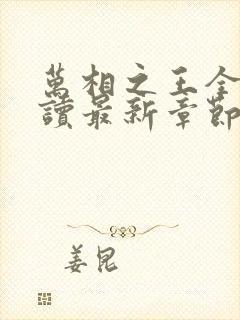 萬相之王全
讀最新章節
姜昆